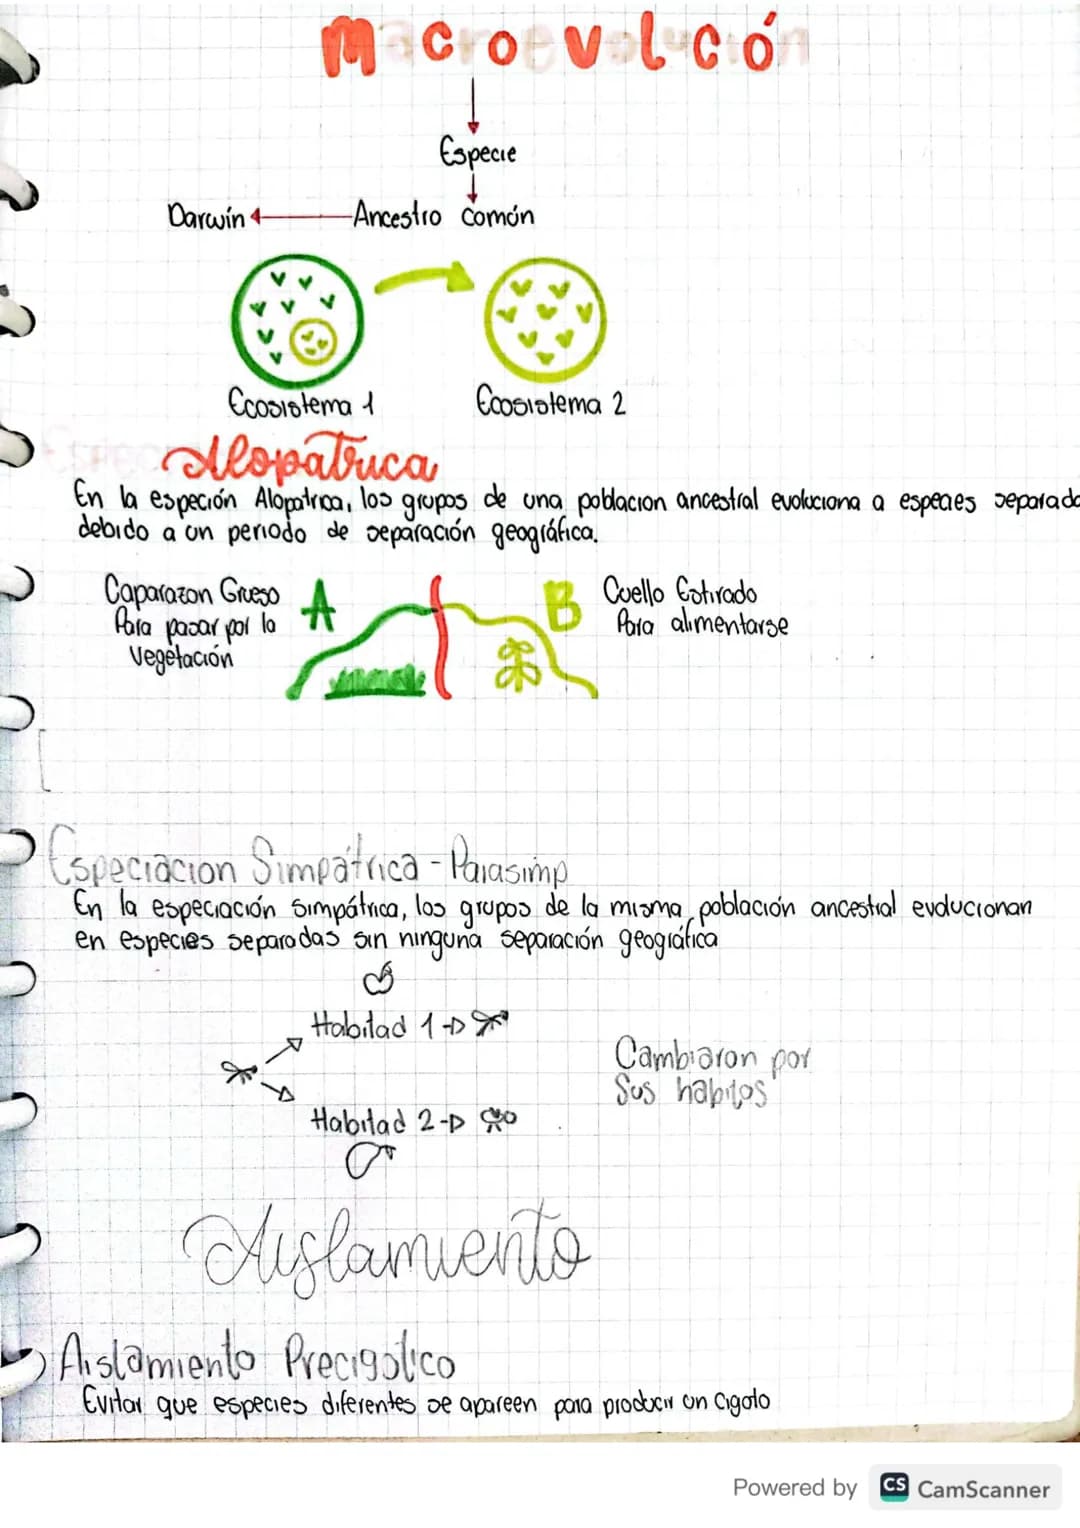 Macroevolución
Especie
Darwin Ancestro común
Ecosistema 1 Ecosistema 2
Alopátrica
En la especión Alopatrica, los grupos de una poblacion ancestral evoluciona a especies separado
debido a un periodo de separación geográfica.
Caparazon Grueso
Para pasar por la
Vegetación
A
B
Cuello Estirado
Para alimentarse
Especiacion Simpátrica - Parasimp
En la especiación simpátrica, los grupos de la misma población ancestral evolucionan
en especies separadas sin ninguna separación geográfica
Habitad 1
Habitad 2
Cambiaron por
Sus habitos
Aislamiento
Aislamiento Precigotico
Evitar que especies diferentes se apareen para producir un Cigoto
Powered by CS CamScanner